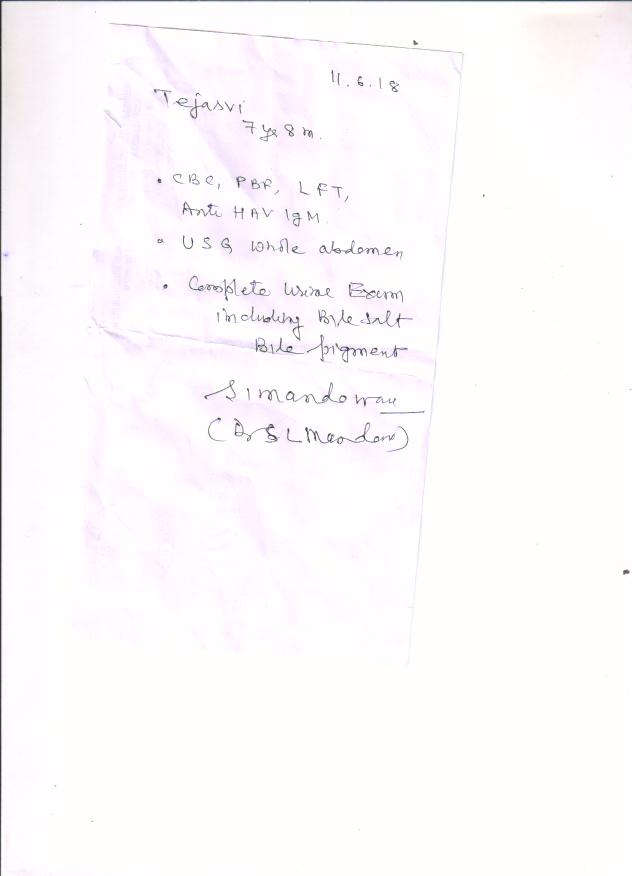 11.6.18
Tejasvi
7 yr 8 m.
• CBC, PBF, LFT,
Anti HAV IgM.
• USG whole abdomen
• Complete Urine Exam
including Bile Salt
Bile pigment
(Dr S L